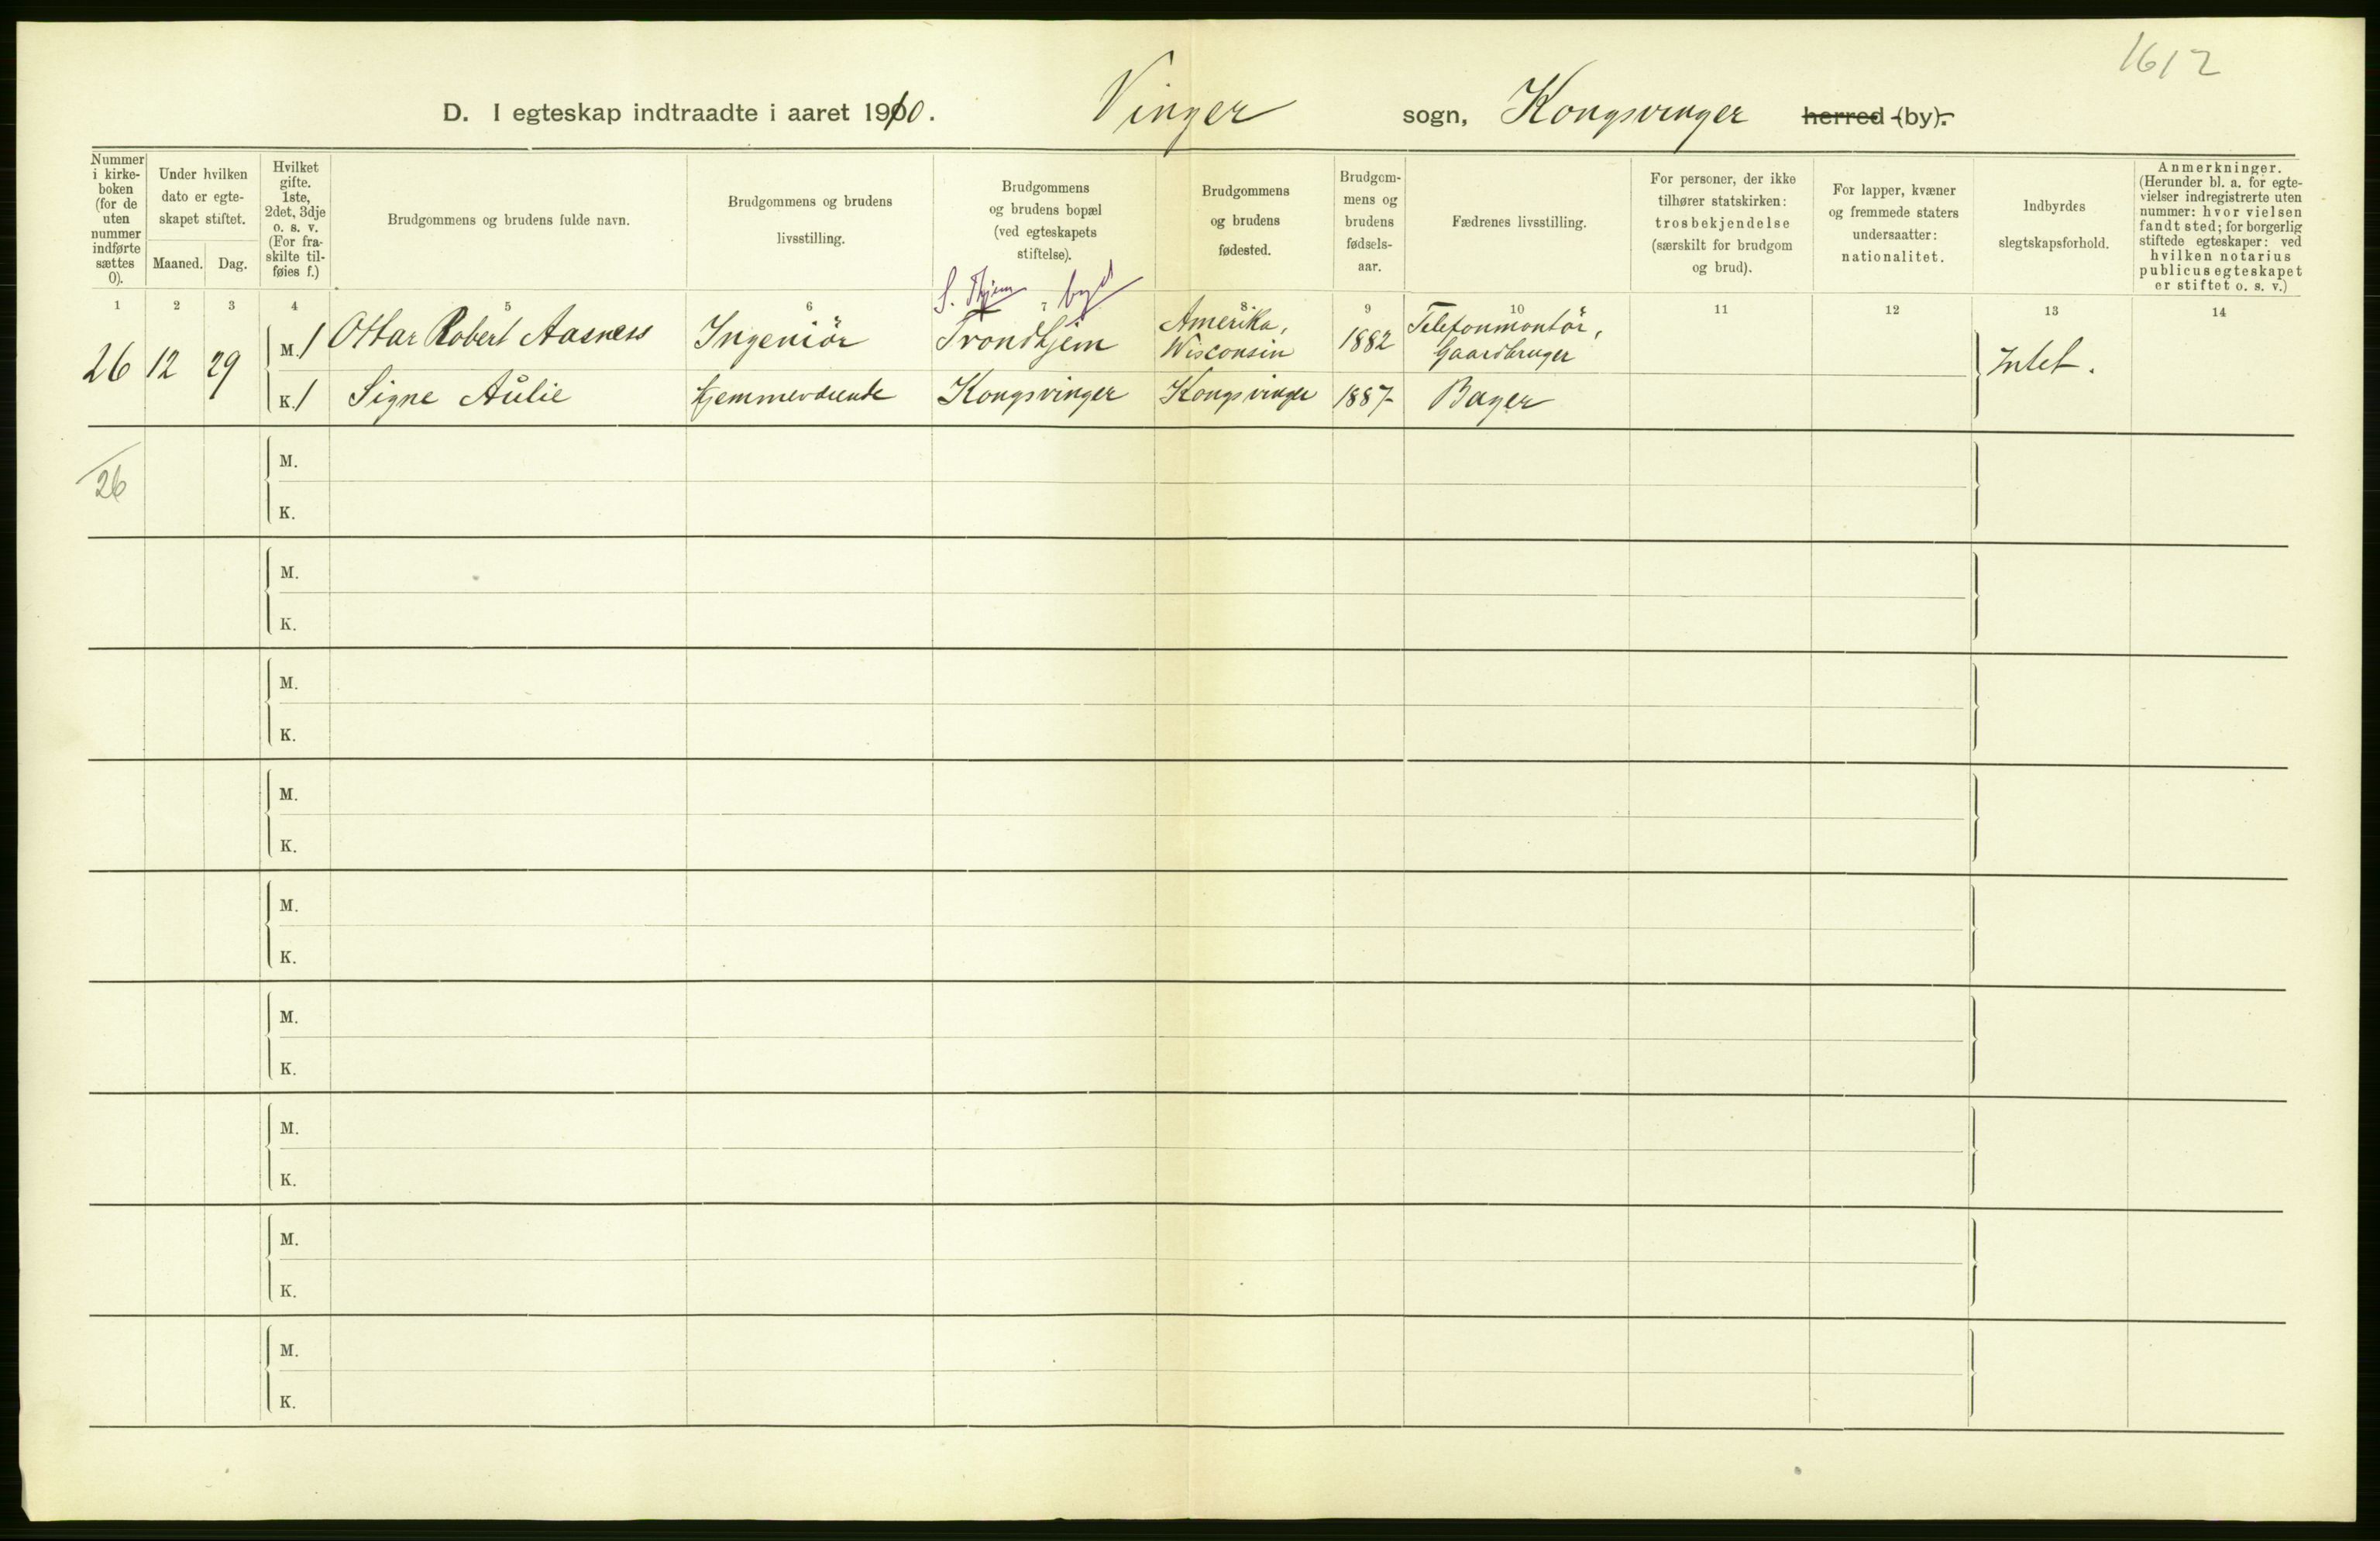 1612
D. I egteskap indtraadte i aaret 1910. Vinger sogn, Kongsvinger herred (by).
Nummer i kirkeboken (for de uten nummer indførte sættes 0).
Under hvilken dato er egteskapet stiftet.
Maaned. Dag.
Hvilket gifte. 1ste, 2det, 3dje o. s. v. (For fraskilte tilføies f.)
Brudgommens og brudens fulde navn.
Brudgommens og brudens livsstilling.
Brudgommens og brudens bopæl (ved egteskapets stiftelse).
Brudgommens og brudens fødested.
Brudgommens og brudens fødselsaar.
Fædrenes livsstilling.
For personer, der ikke tilhører statskirken: trosbekjendelse (særskilt for brudgom og brud).
For lapper, kvæner og fremmede staters undersaatter: nationalitet.
Indbyrdes slegtskapsforhold.
Anmerkninger. (Herunder bl. a. for egtevielser indregistrerte uten nummer: hvor vielsen fandt sted; for borgerlig stiftede egteskaper: ved hvilken notarius publicus egteskapet er stiftet o. s. v.)
S. Thjem by
1 2 3 4 5 6 7 8 9 10 11 12 13 14
26 12 29 M. 1 Ottar Robert Aasness Ingeniör Trondhjem Amerika, Wisconsin 1882 Telefonmontör, Gaardbruger Intet.
K. 1 Signe Aulie Hjemmeværende Kongsvinger Kongsvinger 1887 Bager
26
M.
K.
M.
K.
M.
K.
M.
K.
M.
K.
M.
K.
M.
K.
M.
K.
M.
K.